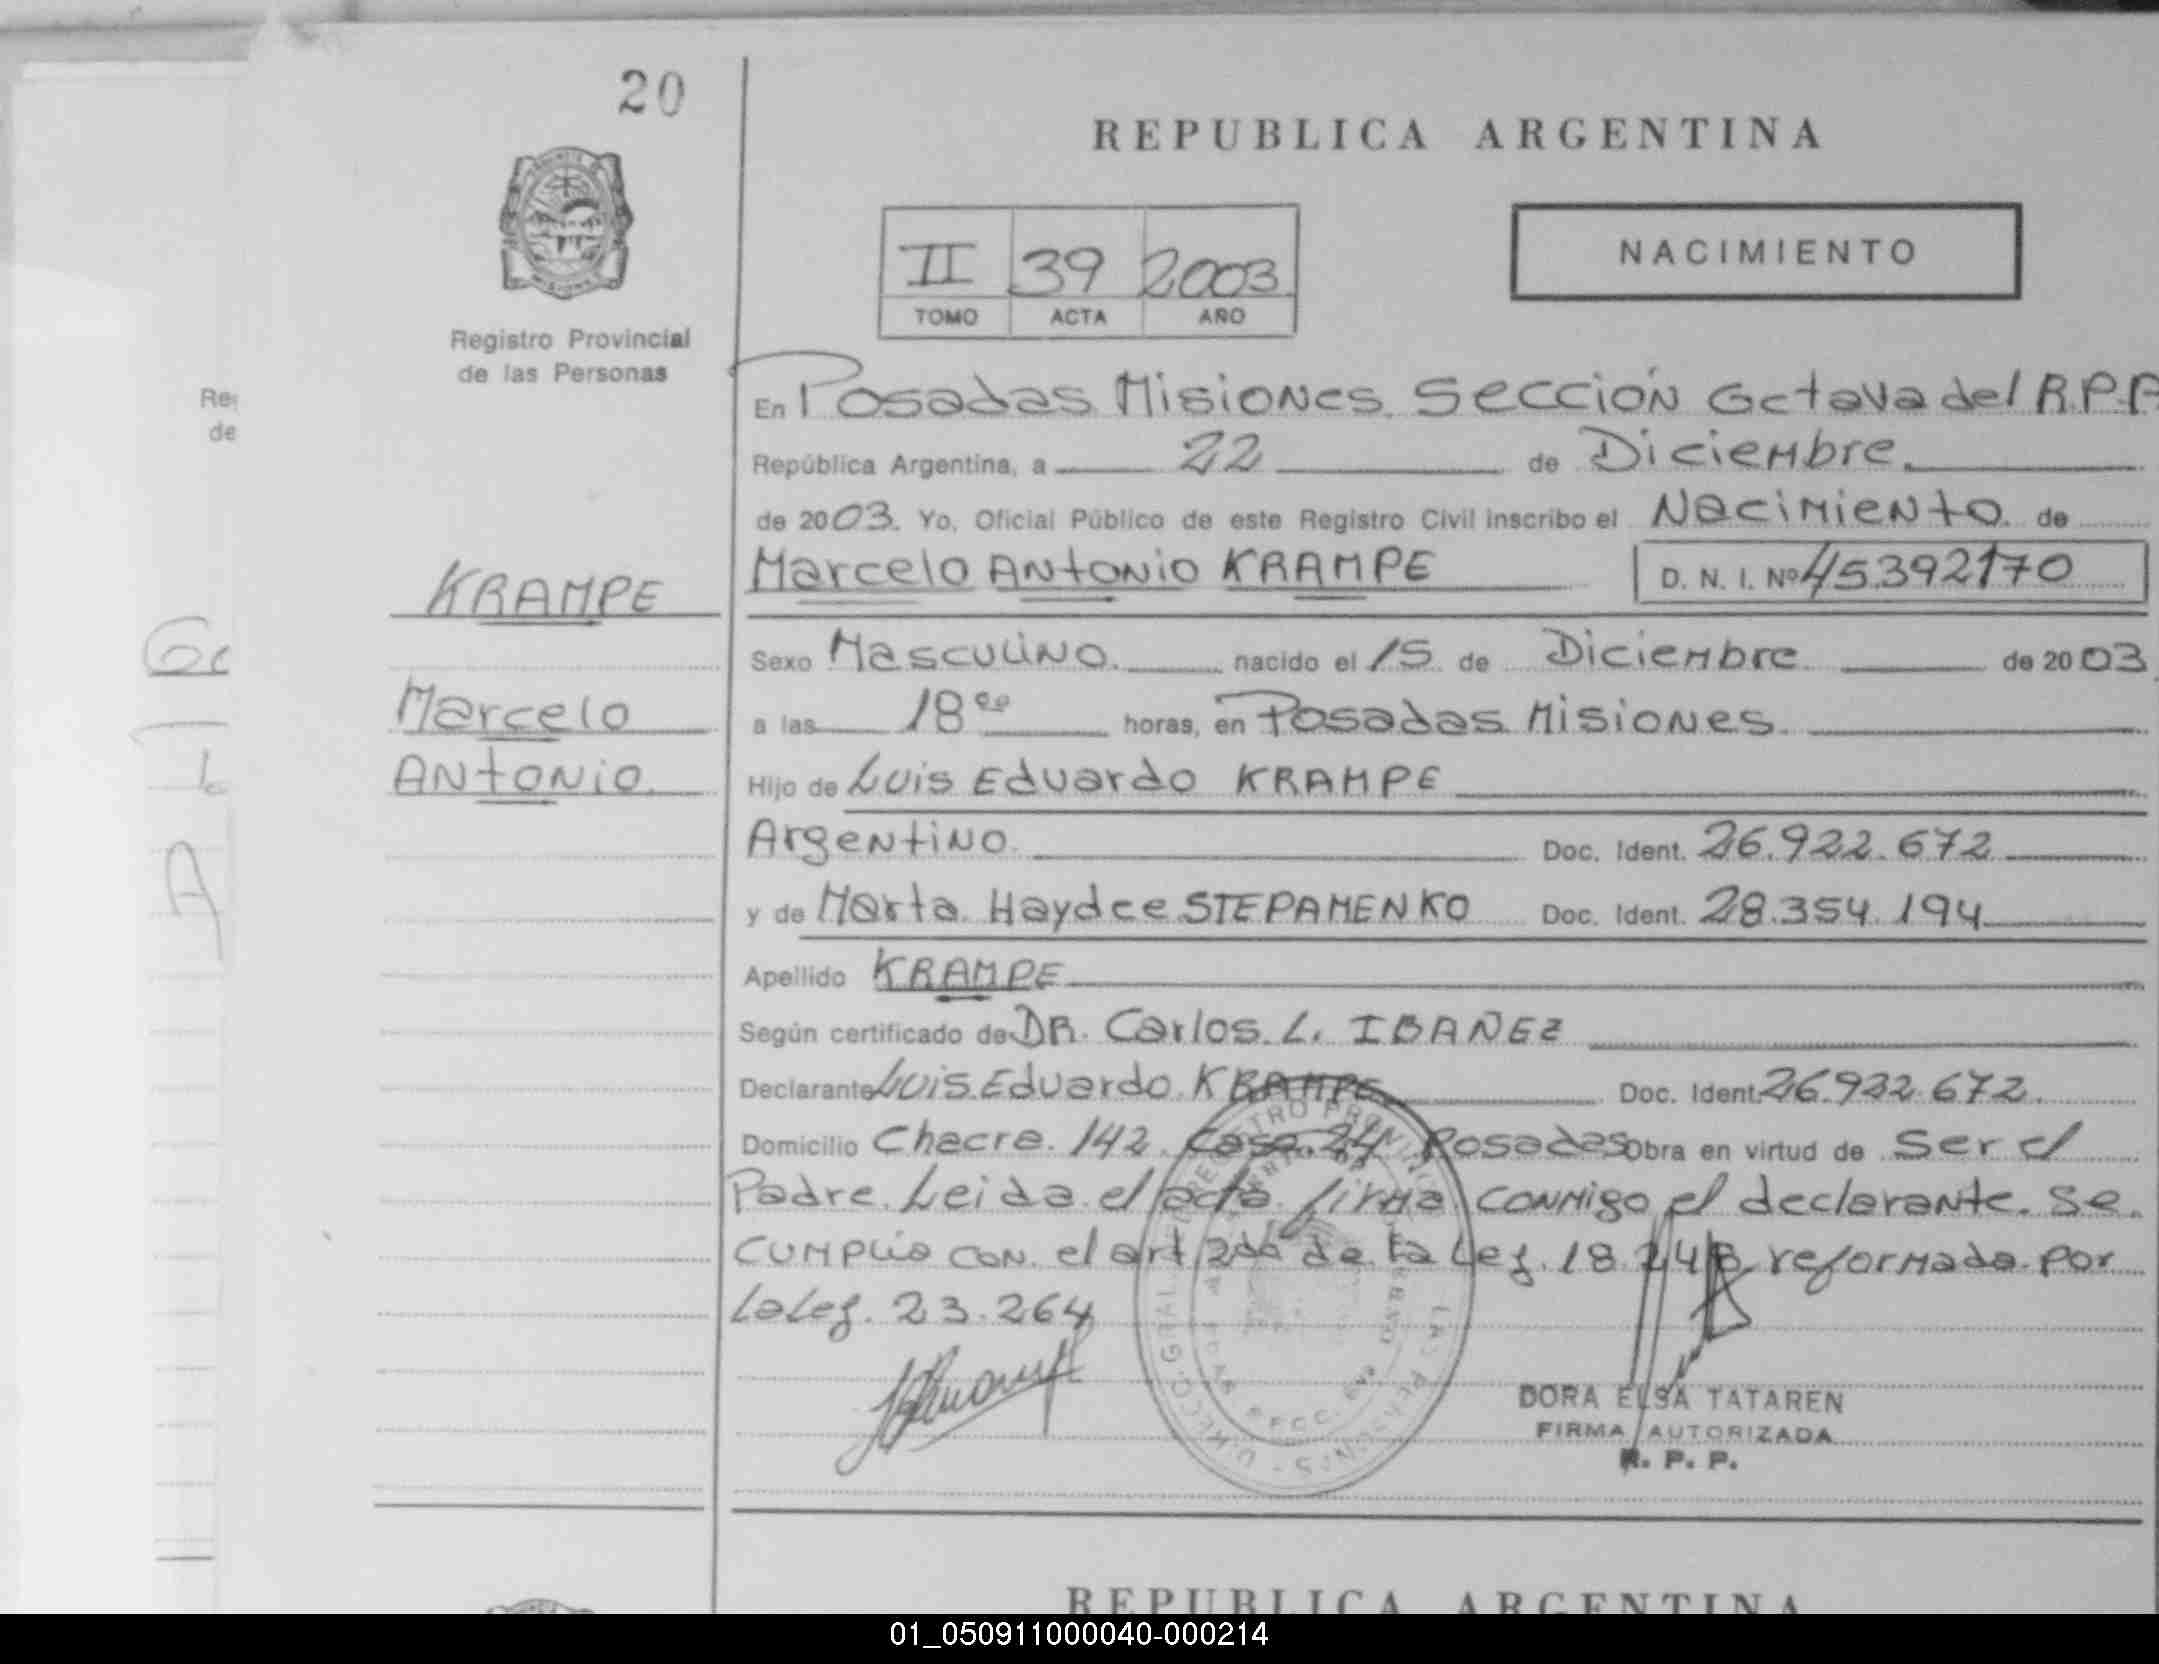 20
REPUBLICA ARGENTINA
II 39 2003
TOMO ACTA AÑO
NACIMIENTO
Registro Provincial
de las Personas
En Posadas Misiones. Sección Octava del R.P.P
República Argentina, a 22 de Diciembre.
de 2003. Yo, Oficial Público de este Registro Civil inscribo el Nacimiento de
Marcelo Antonio KRAMPE D. N. I. Nº 45.392170
KRAMPE
Marcelo
Antonio.
Sexo Masculino. nacido el 15 de Diciembre de 2003
a las 18 00 horas, en Posadas Misiones.
Hijo de Luis Eduardo KRAMPE
Argentino. Doc. Ident. 26.922.672
y de Marta Haydee STEPAMENKO Doc. Ident. 28.354.194
Apellido KRAMPE
Según certificado de DR. Carlos. L. IBAÑEZ
Declarante Luis Eduardo KRAMPE Doc. Ident. 26.922.672.
Domicilio Chacra. 142. Casa. 24 Posadas Obra en virtud de Ser el
Padre. Leida el acta firma conmigo el declarante. Se
cumplio con el art 2do de la Ley. 18.248 reformada por
la Ley. 23.264
DORA ELSA TATAREN
FIRMA AUTORIZADA
R. P. P.
REPUBLICA ARGENTINA
01_050911000040-000214